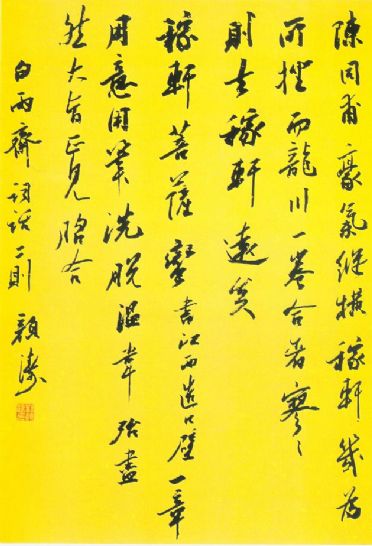 陳同甫豪氣縱橫稼軒幾為
所挫而龍川一卷合者寥々
則去稼軒遠矣
稼軒菩薩蠻書江西造口壁一章
用意用筆洗脱温韋殆盡
然大旨正見脗合
白雨齋詞話二則